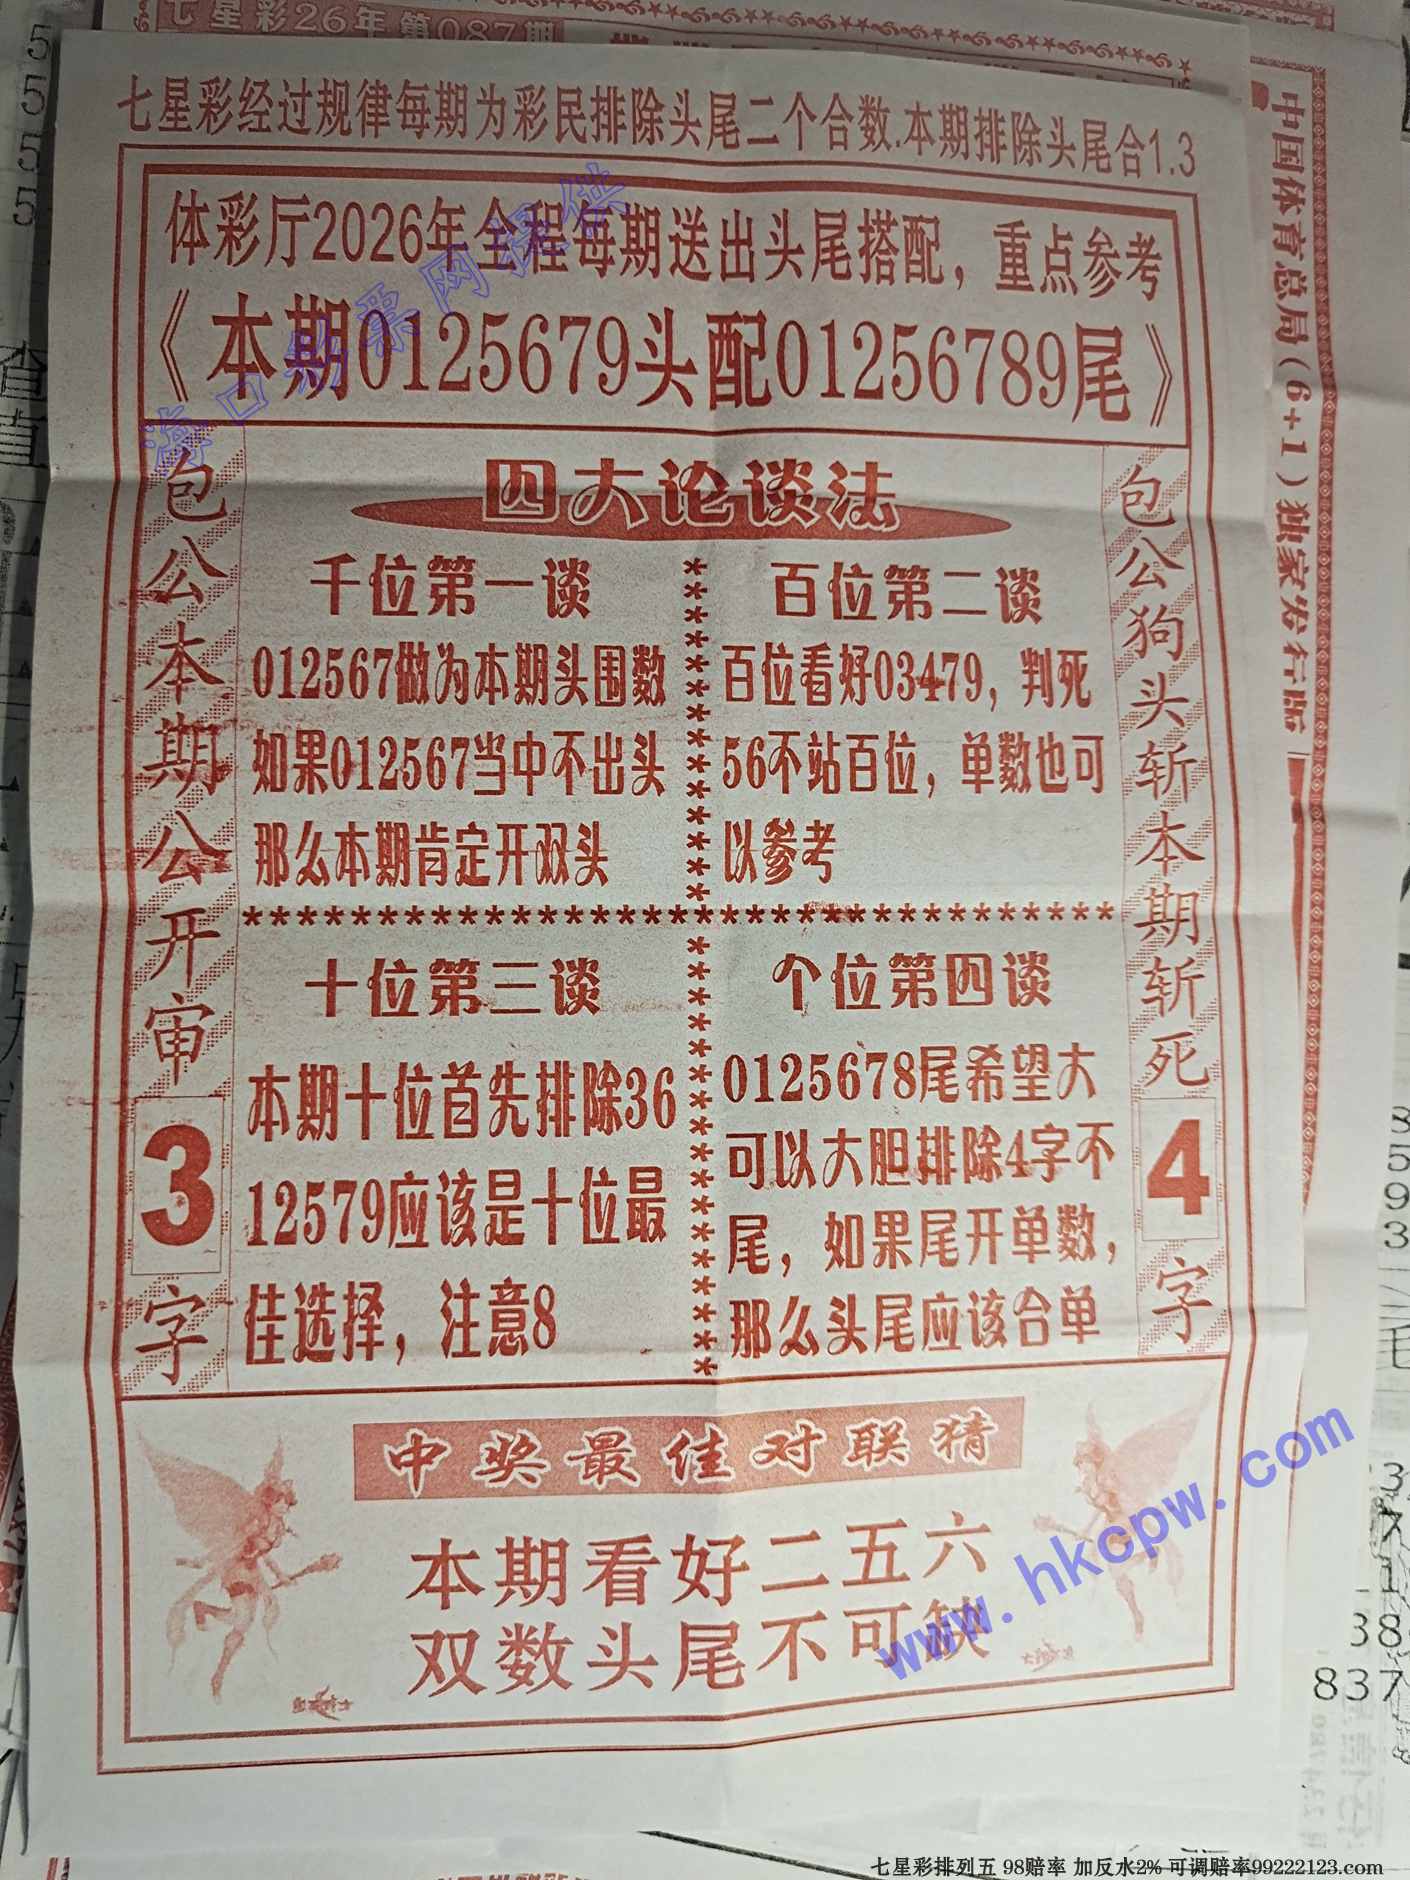 七星彩26年第087期
七星彩经过规律每期为彩民排除头尾二个合数.本期排除头尾合1.3
体彩厅2026年全程每期送出头尾搭配，重点参考
《本期0125679头配01256789尾》
海口彩票网提供
包公本期公开审3字
四大论谈法
千位第一谈
012567做为本期头围数
如果012567当中不出头
那么本期肯定开双头
百位第二谈
百位看好03479，判死
56不站百位，单数也可
以参考
十位第三谈
本期十位首先排除36
12579应该是十位最
佳选择，注意8
个位第四谈
0125678尾希望大
可以大胆排除4字不
尾，如果尾开单数，
那么头尾应该合单
包公狗头斩本期斩死4字
中奖最佳对联猜
本期看好二五六
双数头尾不可缺
中国体育总局(6+1)独家发行版
www.hkcpw.com
837
七星彩排列五 98赔率 加反水2% 可调赔率99222123.com